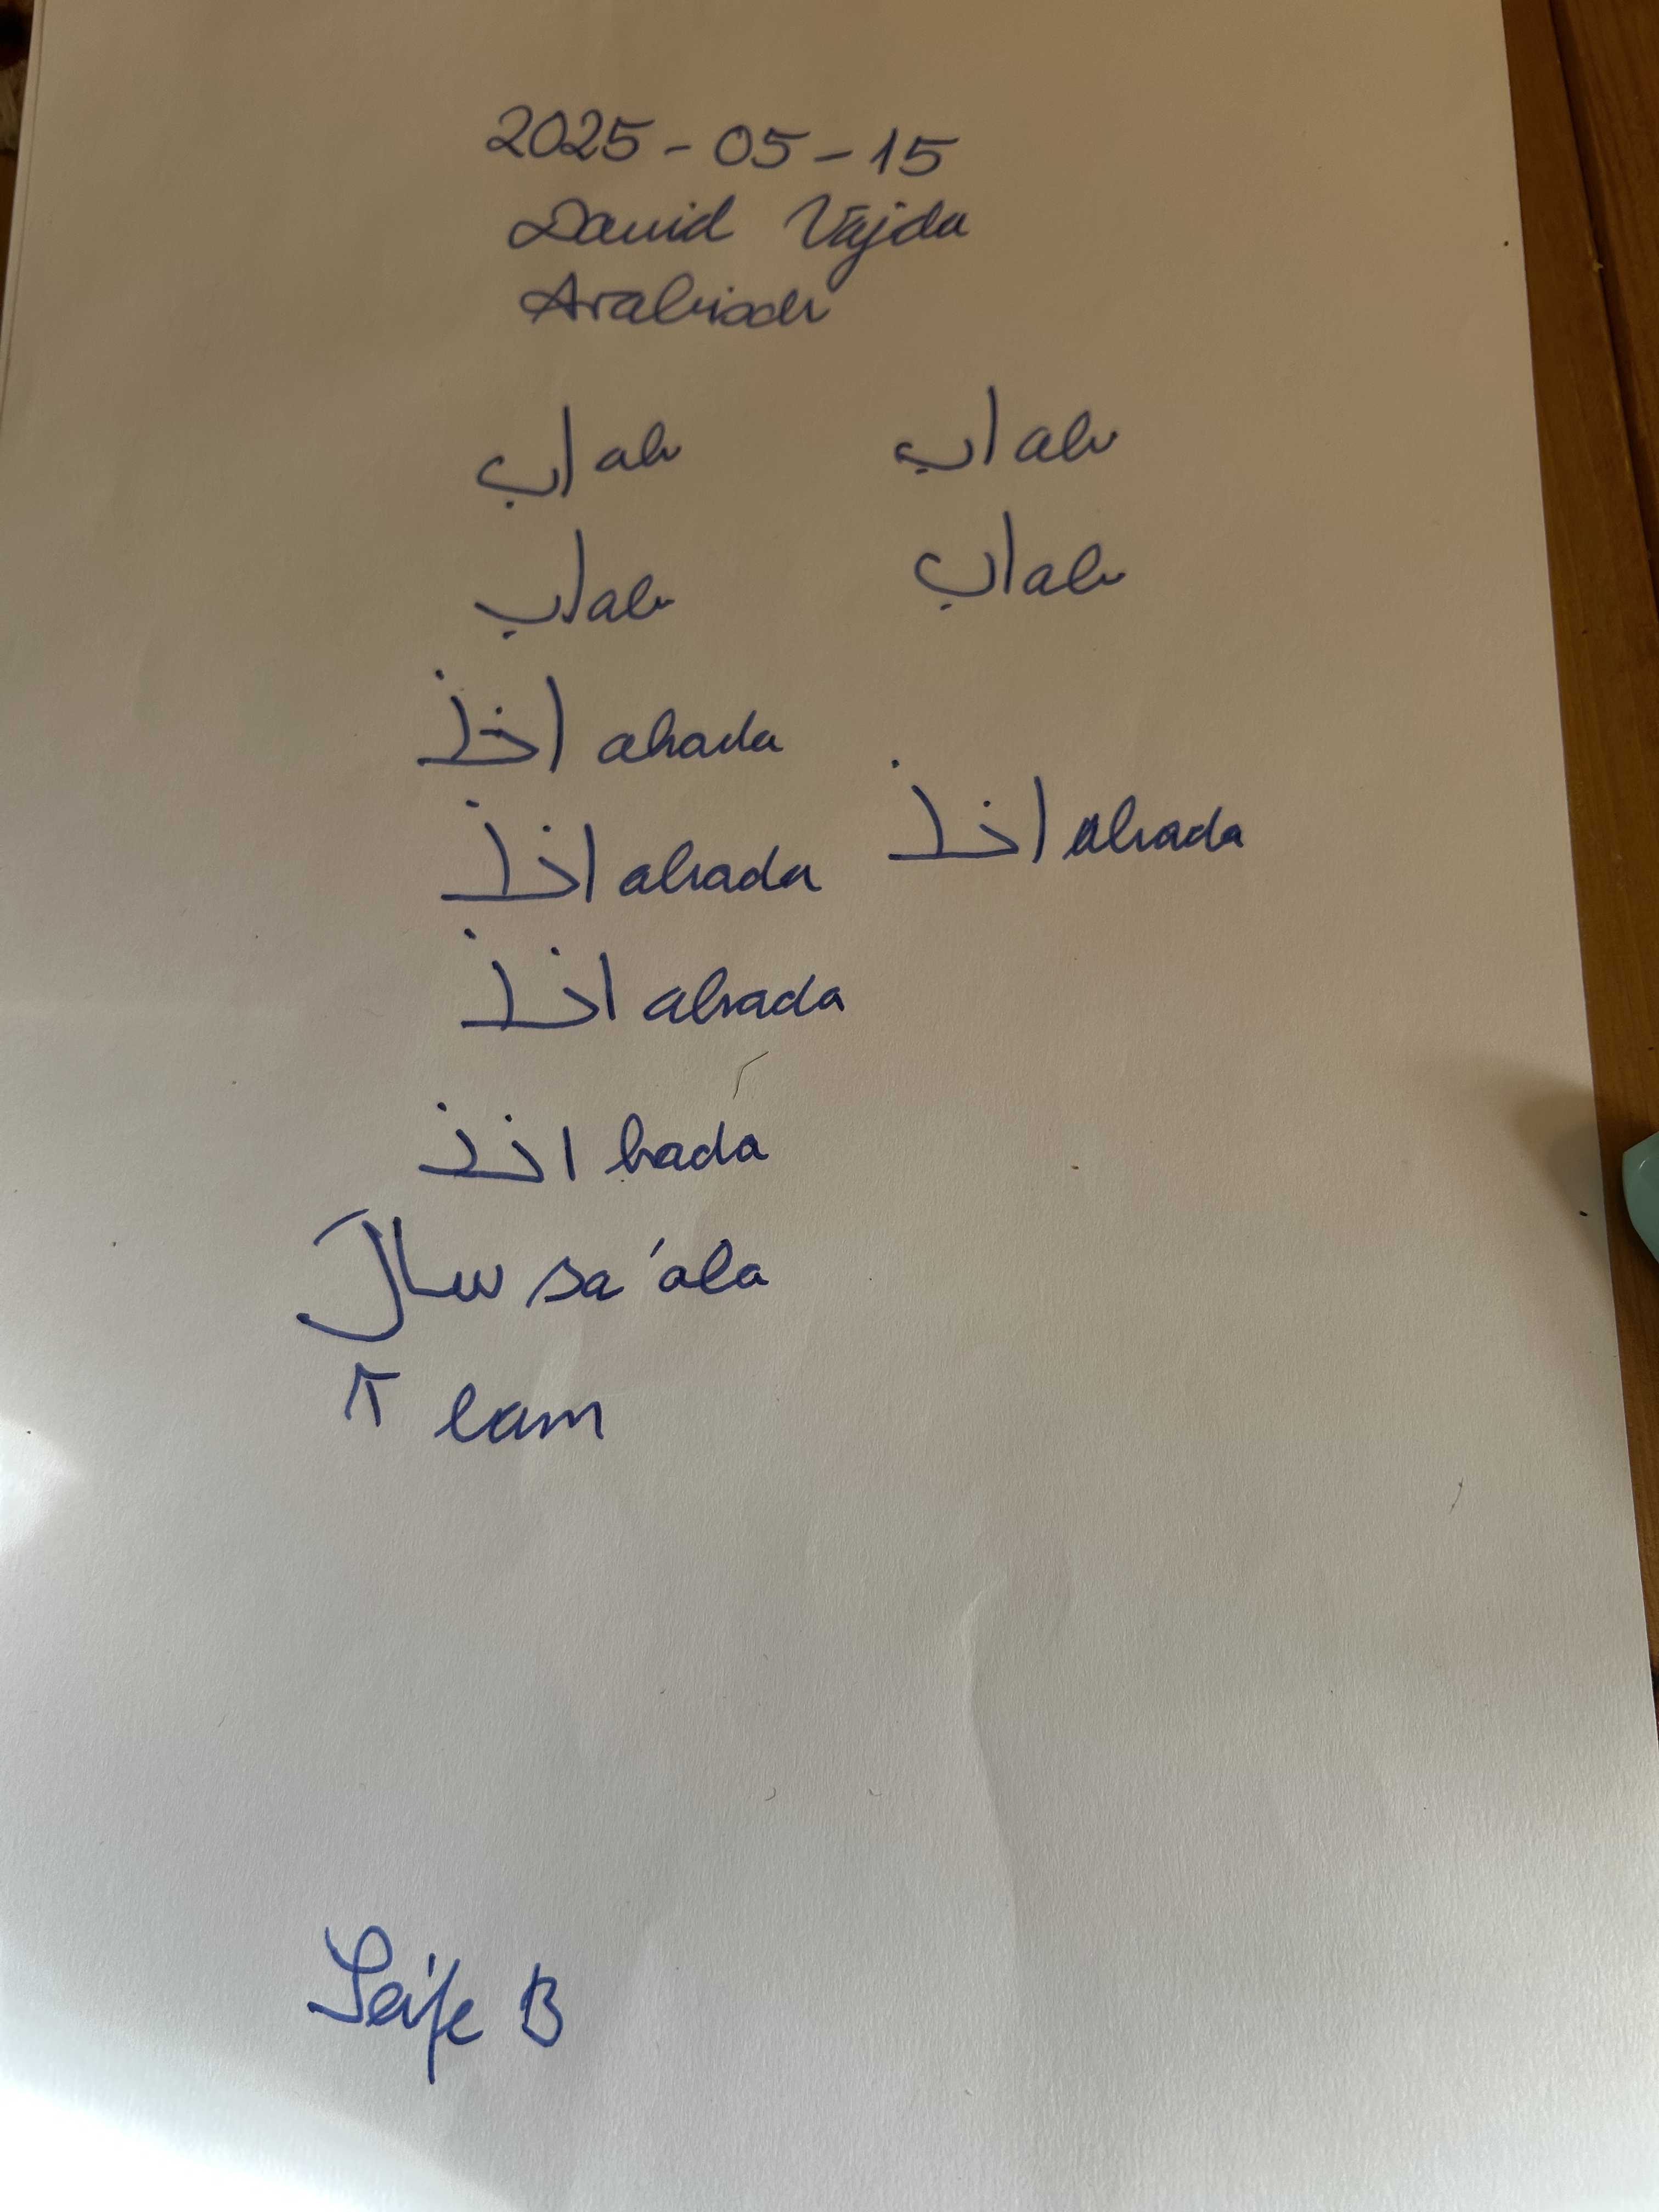 2025-05-15
David Vajda
Arabisch
اب ab اب ab
اب ab اب ab
اخذ ahada
اخذ ahada اخذ ahada
اخذ ahada
اخذ hada
سال sa'ala
lam
Seife B